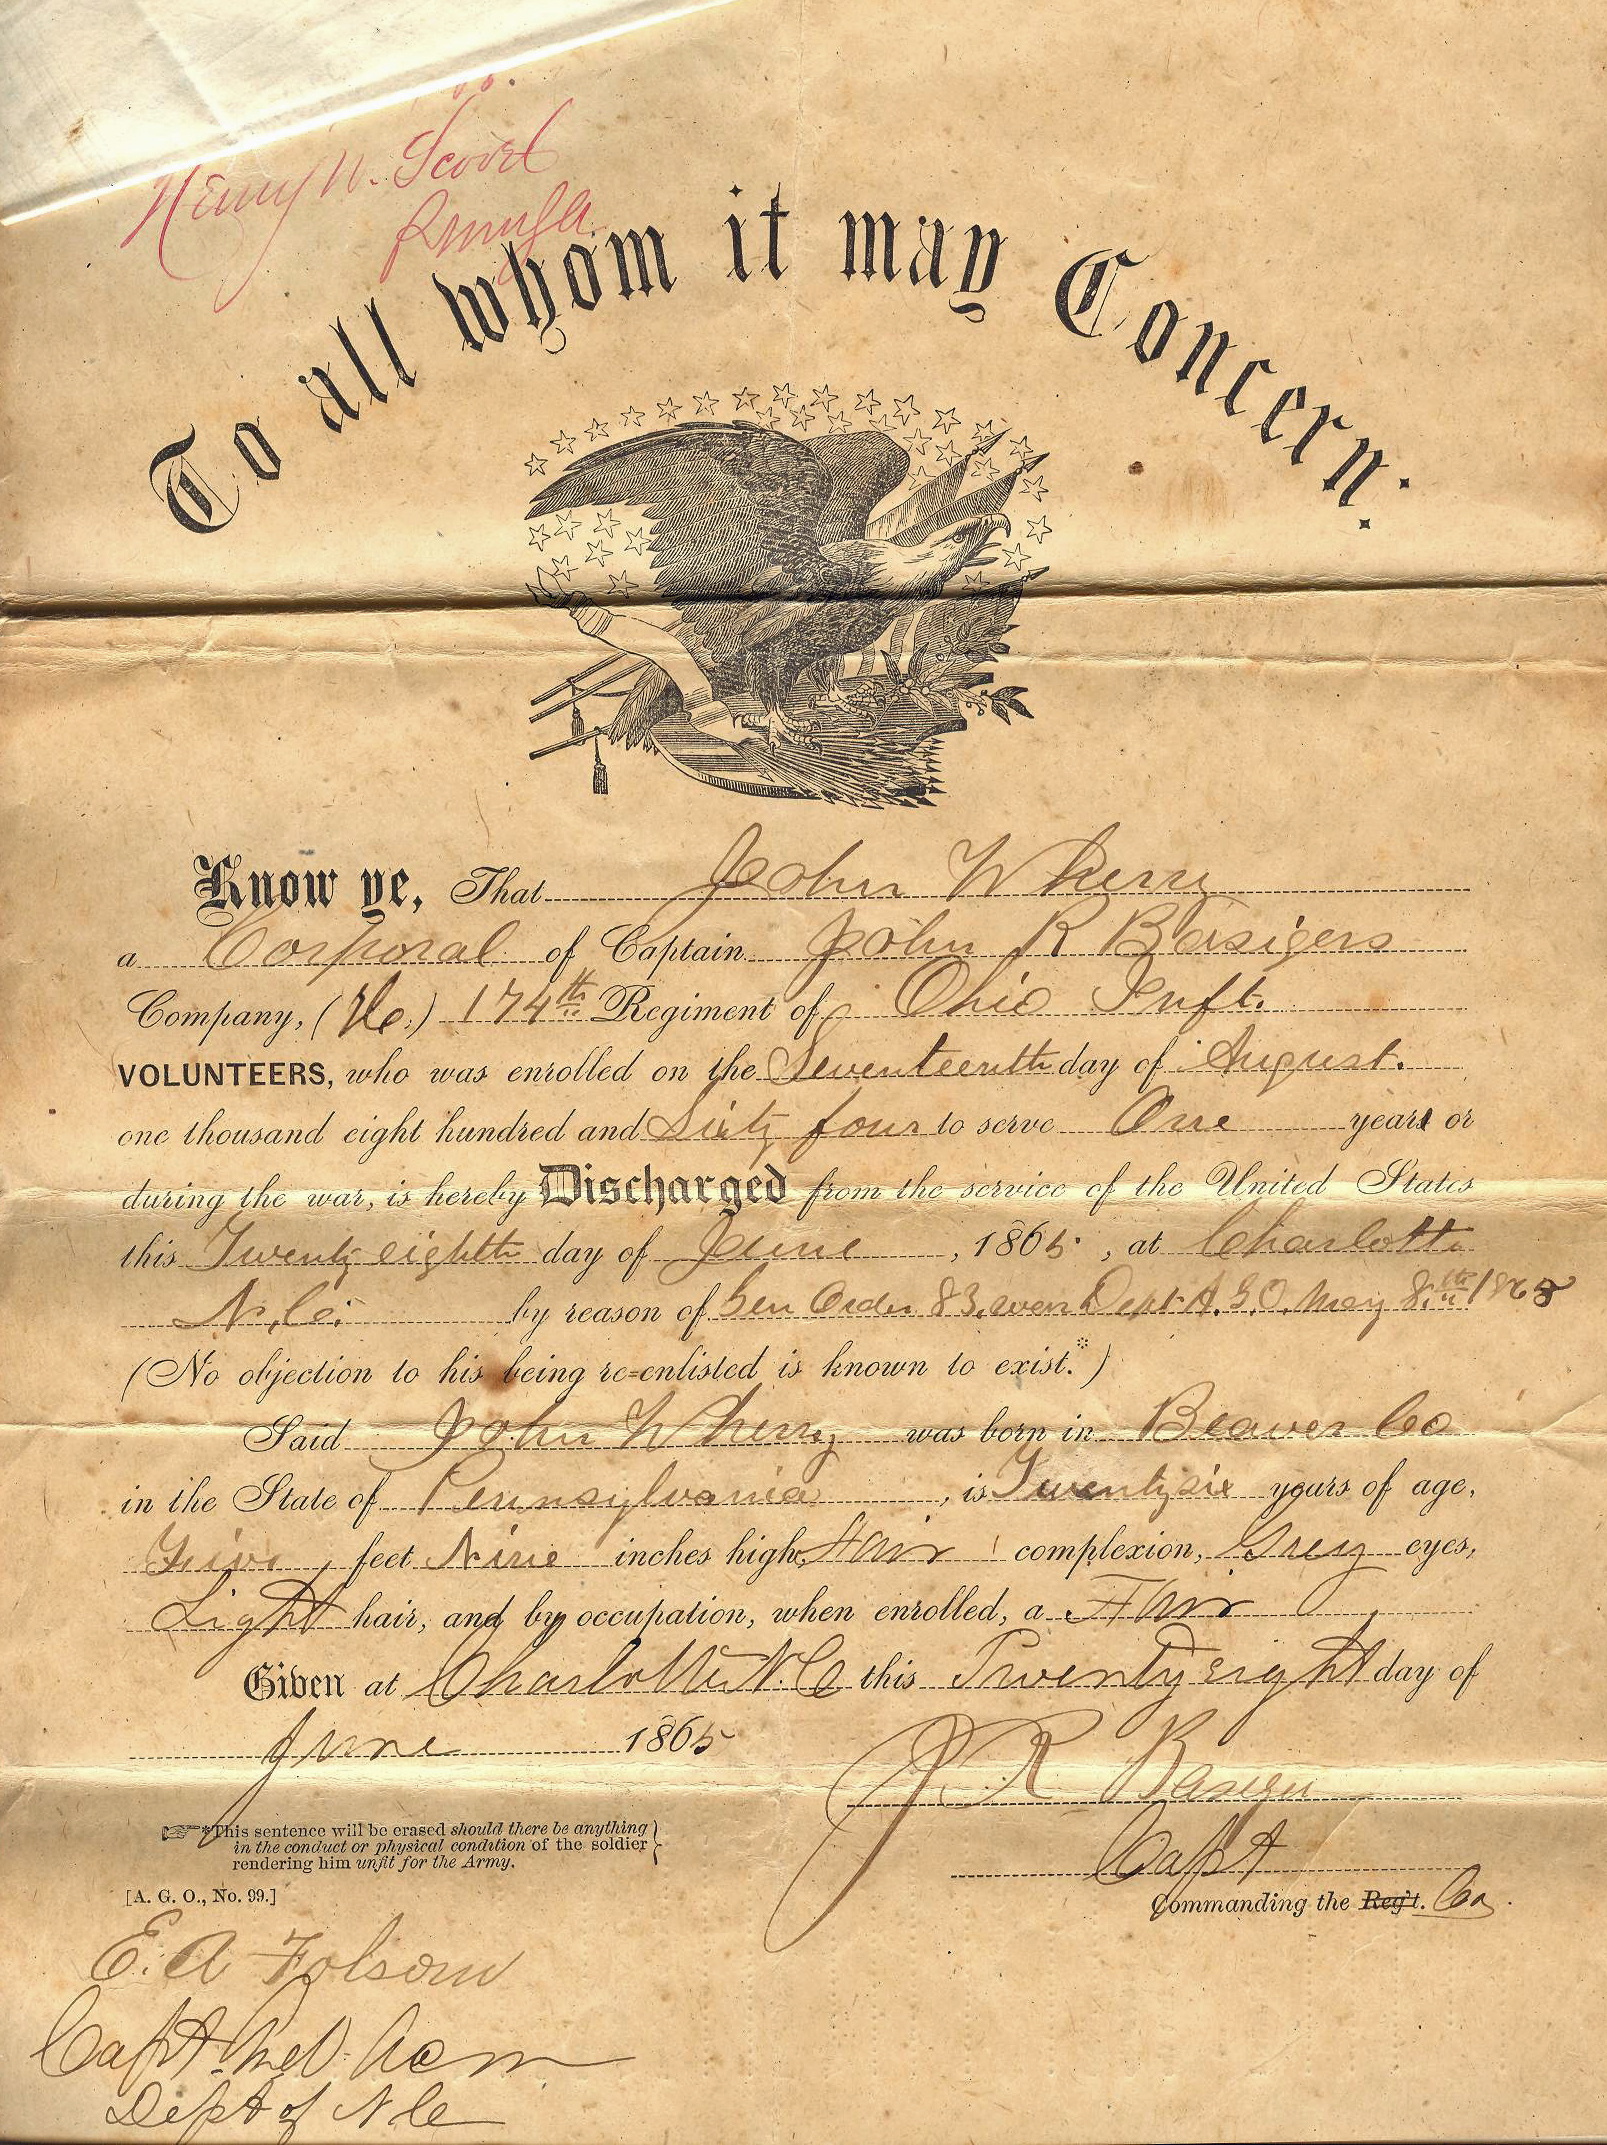 Henry W. Scovel
To all whom it may Concern:
Know ye, That John Wherry
a Corporal of Captain John R Basigers
Company, ( ) 174th Regiment of Ohio Inft.
VOLUNTEERS, who was enrolled on the Seventeenth day of August.
one thousand eight hundred and Sixty four to serve One years or
during the war, is hereby Discharged from the service of the United States
this Twenty eighth day of June, 1865, at Charlotte
N. Co. by reason of Gen Order 83. war Dept. A. G. O. May 8th 1865
(No objection to his being re-enlisted is known to exist.*)
Said John Wherry was born in Beaver Co
in the State of Pennsylvania, is Twenty six years of age,
Five feet Nine inches high, Fair complexion, Grey eyes,
Light hair, and by occupation, when enrolled, a
Given at Charlotte N. C this Twenty eight day of
June 1865
J R Basiger
Capt
Commanding the Reg't. Co.
*This sentence will be erased should there be anything
in the conduct or physical condition of the soldier
rendering him unfit for the Army.
[A. G. O., No. 99.]
E. A Folsom
Capt.
Dept of N C